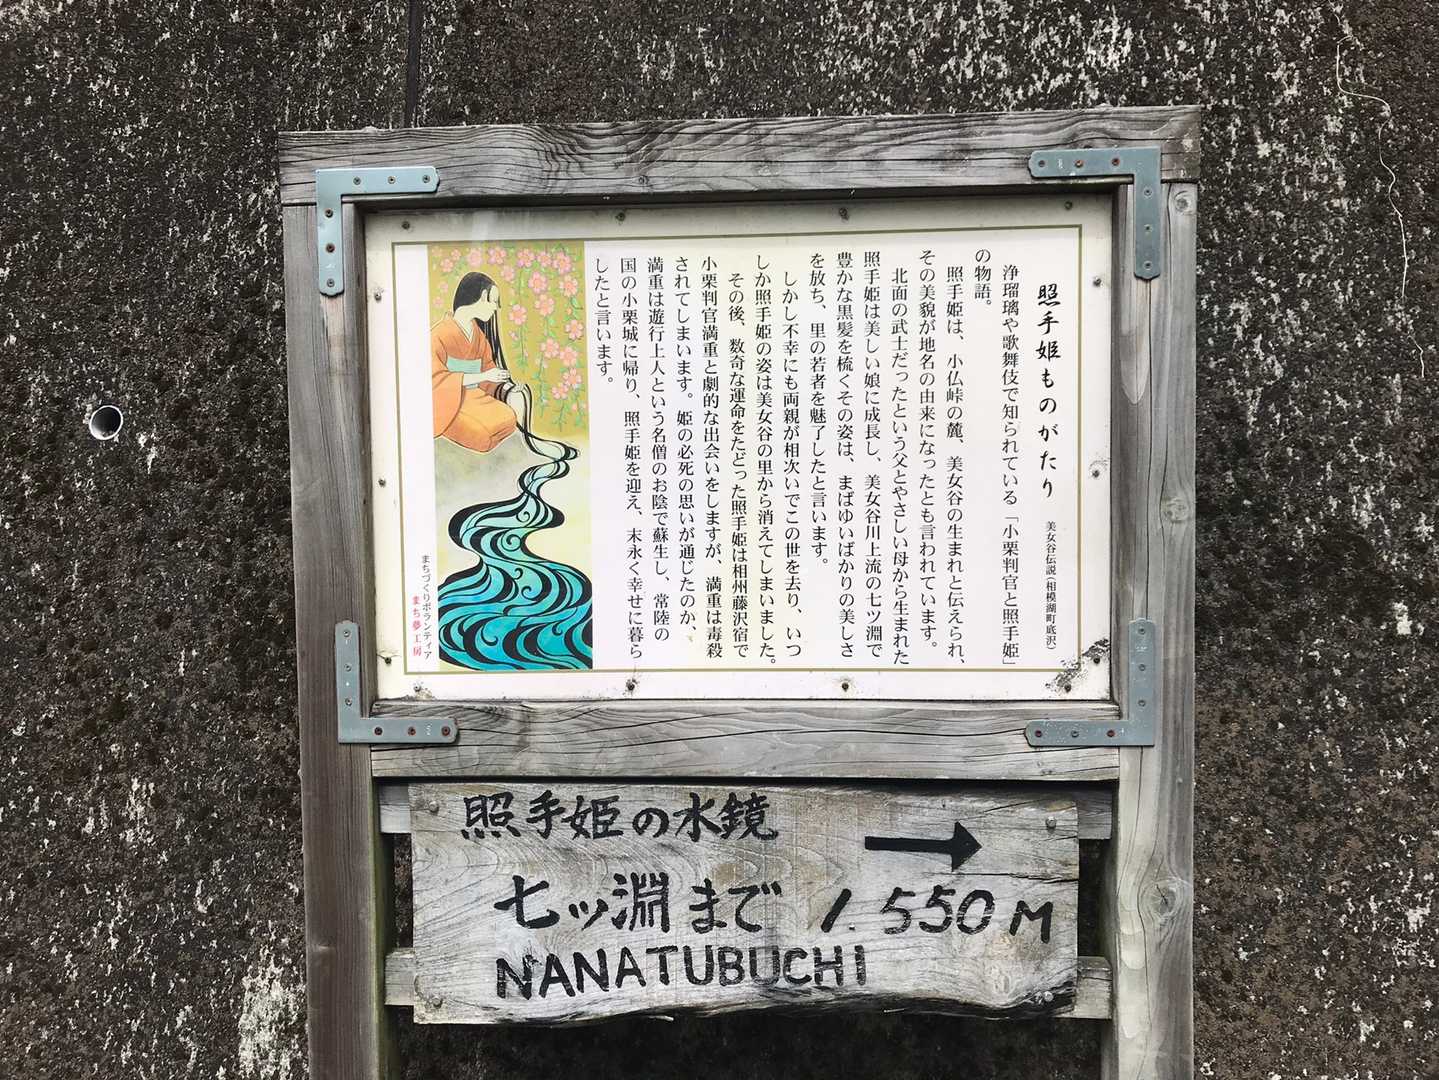 照手姫ものがたり
美女谷伝説(相模湖町底沢)
浄瑠璃や歌舞伎で知られている「小栗判官と照手姫」
の物語。
照手姫は、小仏峠の麓、美女谷の生まれと伝えられ、
その美貌が地名の由来になったとも言われています。
北面の武士だったという父とやさしい母から生まれた
照手姫は美しい娘に成長し、美女谷川上流の七ツ淵で
豊かな黒髪を梳くその姿は、まばゆいばかりの美しさ
を放ち、里の若者を魅了したと言います。
しかし不幸にも両親が相次いでこの世を去り、いつ
しか照手姫の姿は美女谷の里から消えてしまいました。
その後、数奇な運命をたどった照手姫は相州藤沢宿で
小栗判官満重と劇的な出会いをしますが、満重は毒殺
されてしまいます。姫の必死の思いが通じたのか、
満重は遊行上人という名僧のお陰で蘇生し、常陸の
国の小栗城に帰り、照手姫を迎え、末永く幸せに暮ら
したと言います。
まちづくりボランティア
まち夢工房
照手姫の水鏡
七ッ淵まで 1.550M
NANATUBUCHI